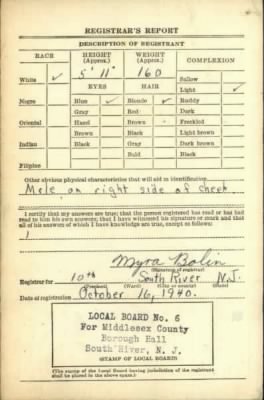 REGISTRAR'S REPORT
DESCRIPTION OF REGISTRANT
RACE HEIGHT (Approx.) WEIGHT (Approx.) COMPLEXION
White ✓ 5' 11" 160 Sallow
EYES HAIR Light ✓
Negro Blue ✓ Blonde ✓ Ruddy
Gray Red Dark
Oriental Hazel Brown Freckled
Brown Black Light brown
Indian Black Gray Dark brown
Bald Black
Filipino
Other obvious physical characteristic that will aid in identification
Mole on right side of cheek
I certify that my answers are true; that the person registered has read or has had read to him his own answers; that I have witnessed his signature or mark and that all of his answers of which I have knowledge are true, except as follows:
Myra Bolin
(Signature of registrar)
Registrar for 10th South River N.J.
(Precinct) (Ward) (City or county) (State)
Date of registration October 16, 1940.
LOCAL BOARD No. 6
For Middlesex County
Borough Hall
South River, N. J.
(STAMP OF LOCAL BOARD)
(The stamp of the Local Board having jurisdiction of the registrant shall be placed in the above space.)